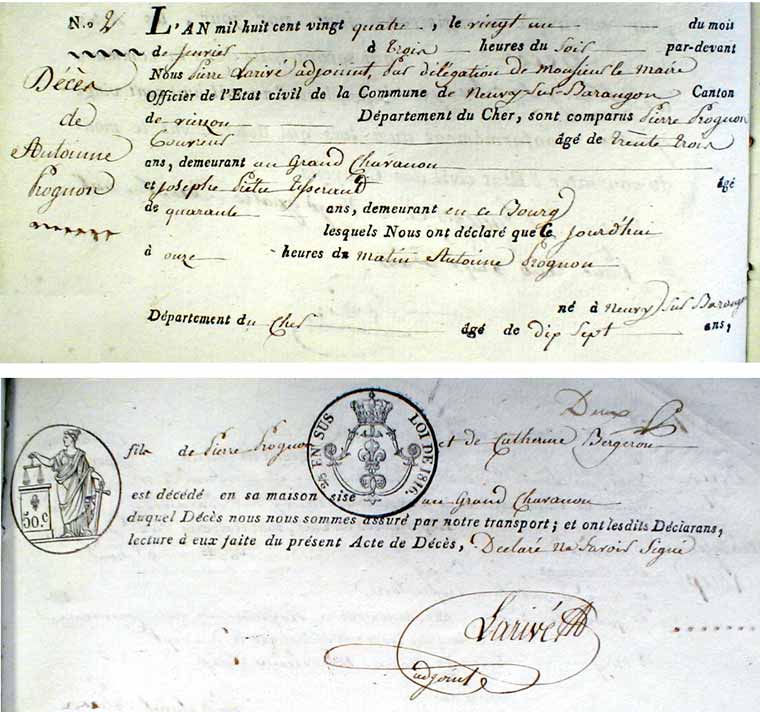 N.o 2
Décès
de
Antoinne
Rognon
L'AN mil huit cent vingt quatre, le vingt un du mois
de jenvier à trois heures du soir par-devant
Nous Pierre Larivé adjoint, par délégation de Monsieur le maire
Officier de l'Etat civil de la Commune de Neuvy-sur-Barangon Canton
de vierzon Département du Cher, sont comparus Pierre Rognon
Couvreur âgé de trente trois
ans, demeurant au Grand Chavanon
et josephe Piètu tisserand âgé
de quarante ans, demeurant en ce Bourg
lesquels Nous ont déclaré que Ce jourd'hui
à onze heures du matin Antoinne Rognon
né à Neuvy sur Barangon
Département du Cher âgé de dix sept ans,
Deux
fils de Pierre Rognon et de Catherine Bergeron
25 EN SUS LOI DE 1816.
50 c
est décédé en sa maison sise au Grand Chavanon
duquel Décès nous nous sommes assuré par notre transport; et ont lesdits Déclarans,
lecture à eux faite du présent Acte de Décès, Declaré ne Savoir Signé
Larivé
adjoint